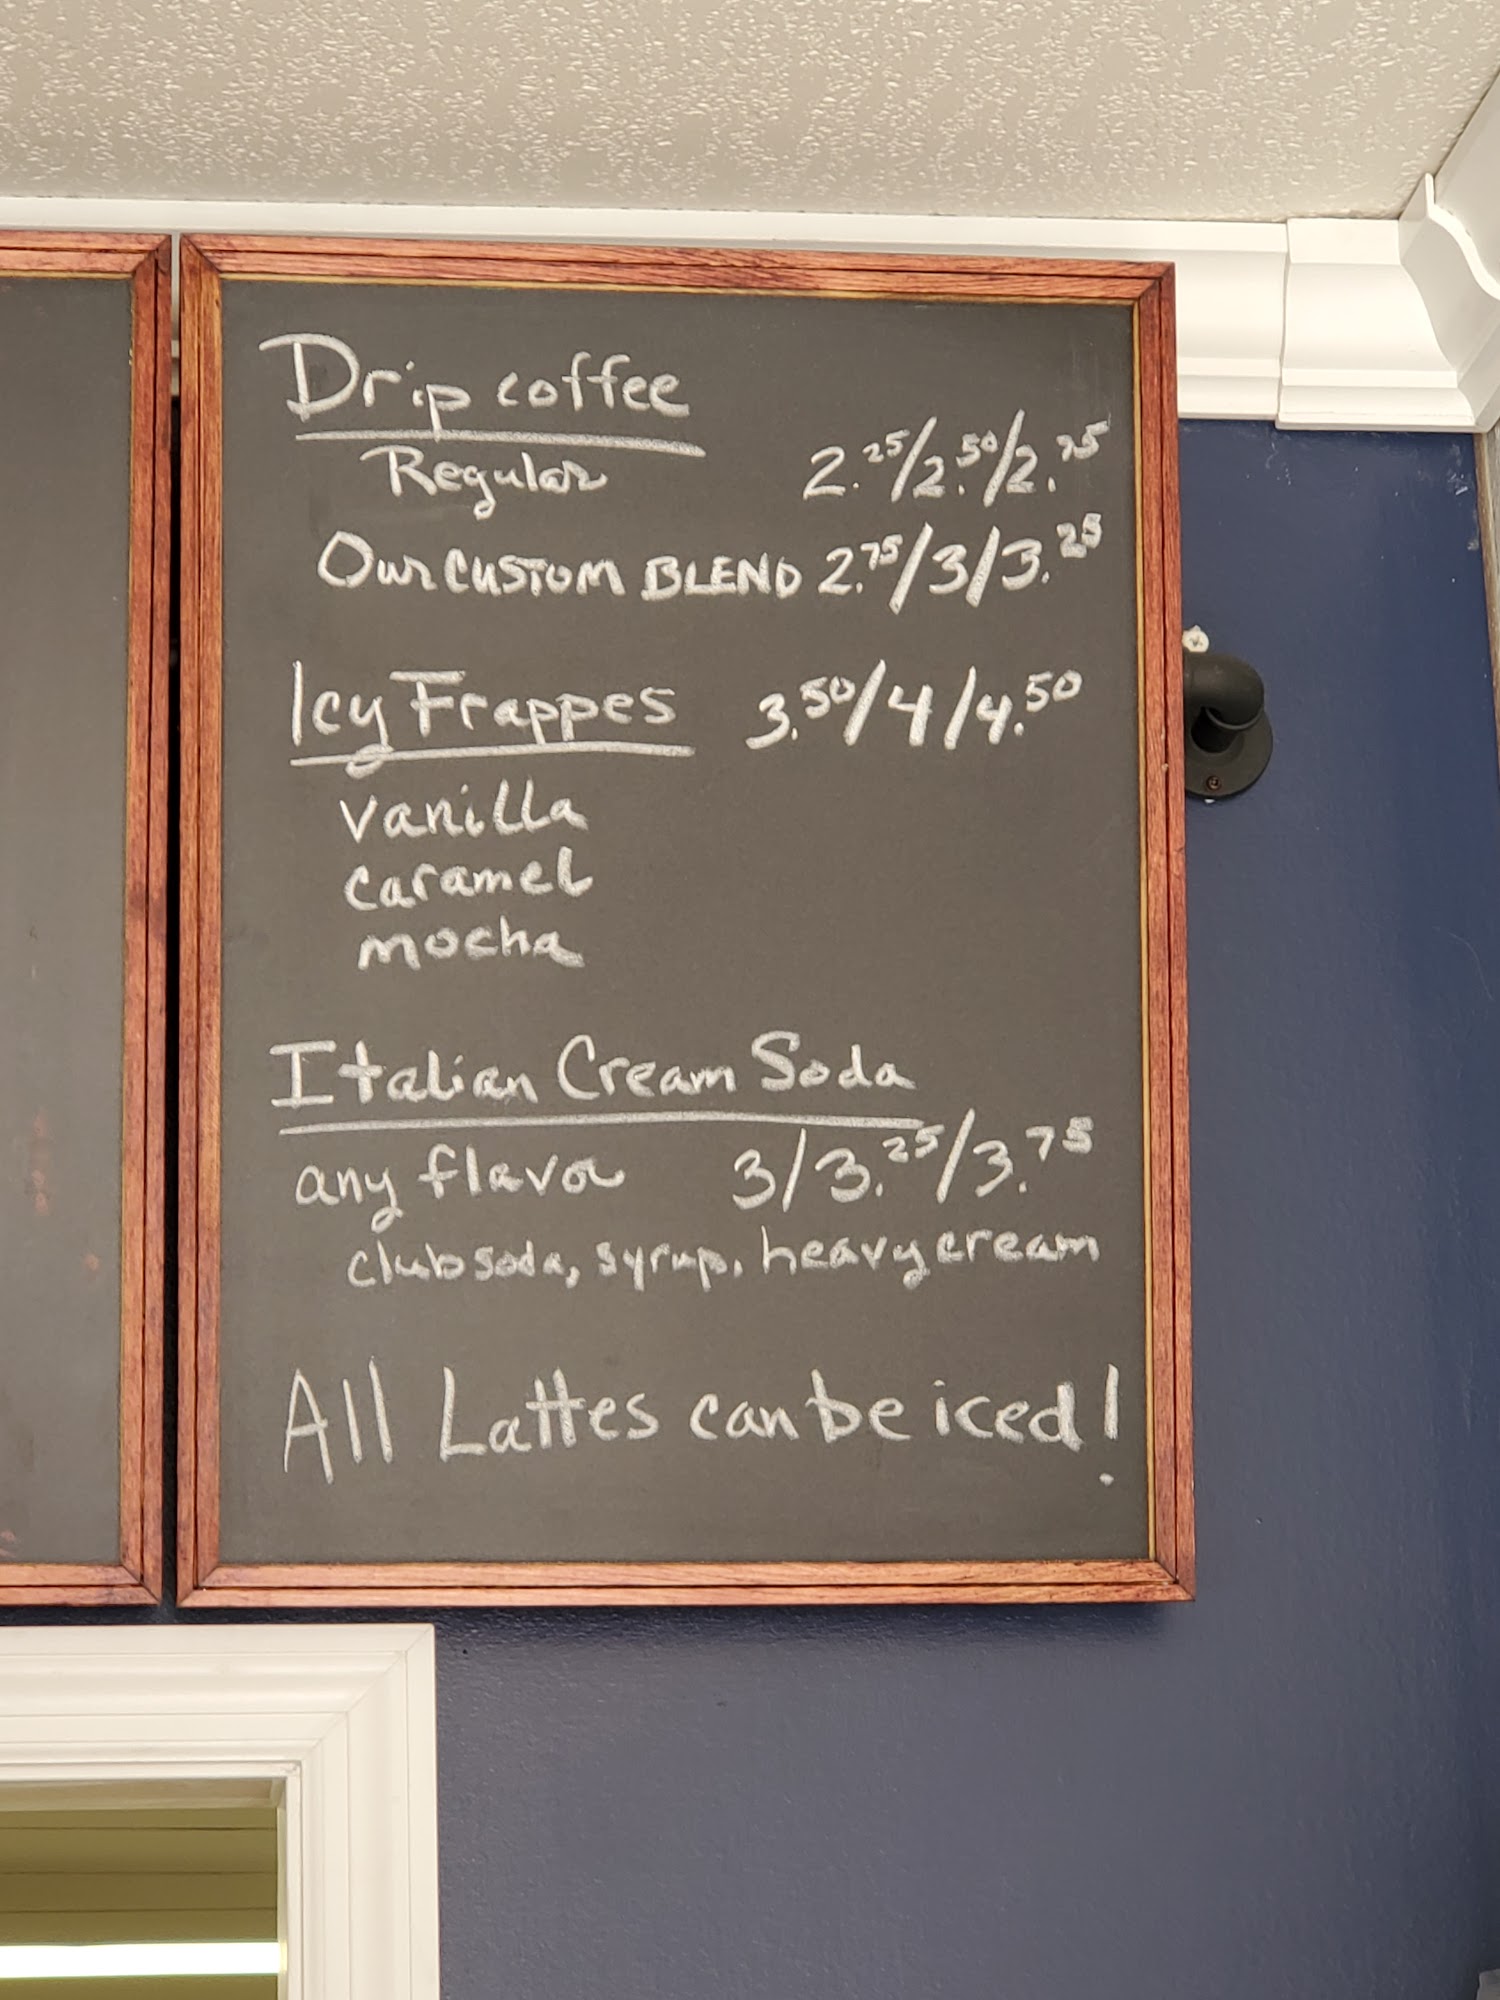 Drip coffee
Regular 2.25/2.50/2.75
Our CUSTOM BLEND 2.75/3/3.25
Icy Frappes 3.50/4/4.50
vanilla
caramel
mocha
Italian Cream Soda
any flavor 3/3.25/3.75
club soda, syrup, heavy cream
All Lattes can be iced!